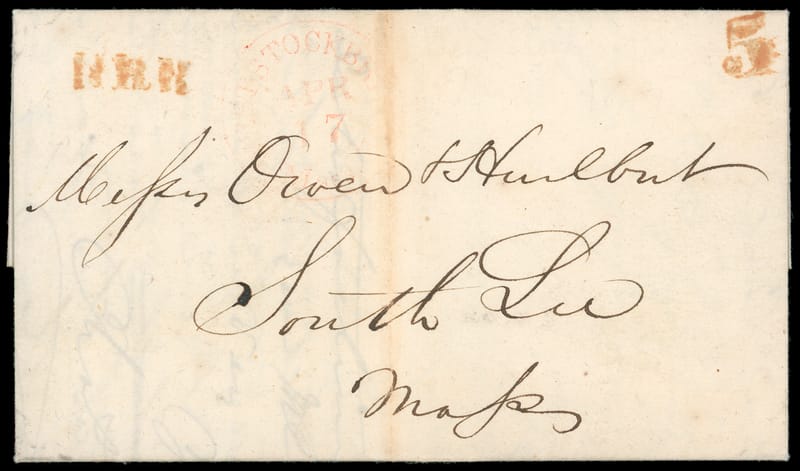 H.R.R
STOCKB
APR
7
5
Messrs Owen & Hurlbut
South Lee
Mass